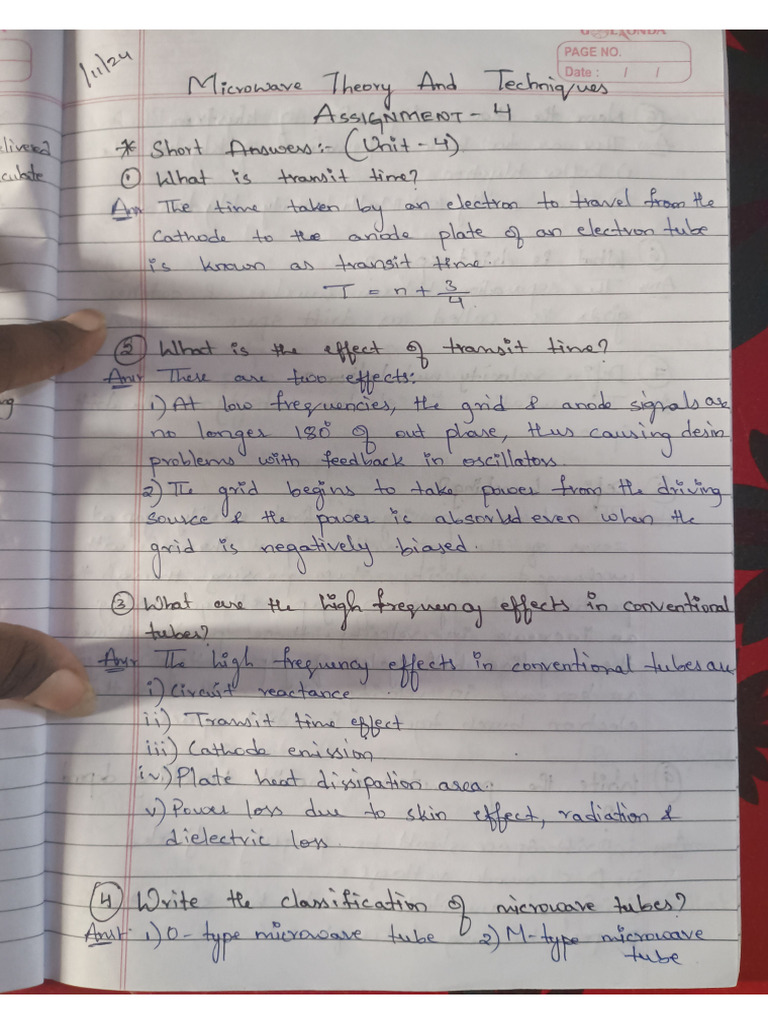 1/11/24
GOLKONDA
PAGE NO.
Date : / /
Microwave Theory And Techniques
ASSIGNMENT - 4
* Short Answers:- (Unit - 4)
① What is transit time?
Ans The time taken by an electron to travel from the
Cathode to the anode plate of an electron tube
is known as transit time.
T = n + 3/4
② What is the effect of transit time?
Ans: These are two effects:
1) At low frequencies, the grid & anode signals are
no longer 180° of out phase, thus causing desin
problems with feedback in oscillators.
2) The grid begins to take power from the driving
source & the power is absorbed even when the
grid is negatively biased.
③ What are the high frequency effects in conventional
tubes?
Ans: The high frequency effects in conventional tubes are
i) Circuit reactance
ii) Transit time effect
iii) Cathode emission
iv.) Plate heat dissipation area.
v) Power loss due to skin effect, radiation &
dielectric loss.
④ Write the classification of microwave tubes?
Ans: 1) O-type microwave tube 2) M-type microwave
tube
livered
culate
ng